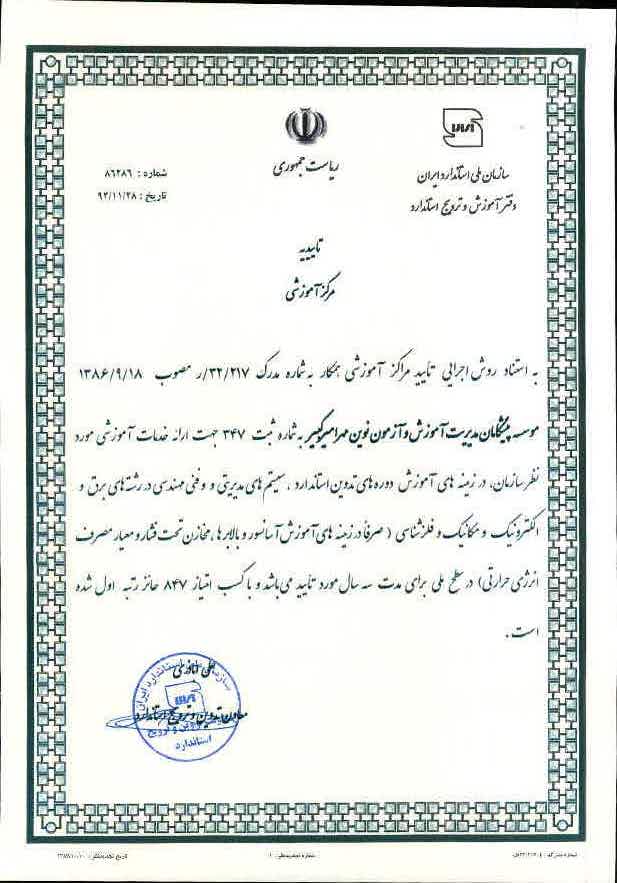 ریاست جمهوری
سازمان ملی استاندارد ایران
دفتر آموزش و ترویج استاندارد
شماره : ۸۶۲۸۶
تاریخ : ۹۳/۱۱/۲۸
تاییدیه
مرکز آموزشی
به استناد روش اجرایی تأیید مراکز آموزشی همکار به شماره مدرک ۳۲/۲۱۷/ر مصوب ۱۳۸۶/۹/۱۸
موسسه پیشگامان مدیریت آموزش و آزمون نوین مهر امیرکبیر به شماره ثبت ۳۴۷ جهت ارائه خدمات آموزشی مورد
نظر سازمان، در زمینه های آموزش دوره های تدوین استاندارد ، سیستم های مدیریتی و فنی مهندسی در رشته های برق و
الکترونیک و مکانیک و فلزشناسی ( صرفاً در زمینه های آموزش آسانسور و بالابرها، مخازن تحت فشار و معیار مصرف
انرژی حرارتی) در سطح ملی برای مدت سه سال مورد تأیید می باشد و با کسب امتیاز ۸۴۷ حائز رتبه اول شده
است .
معاون تدوین و ترویج استاندارد